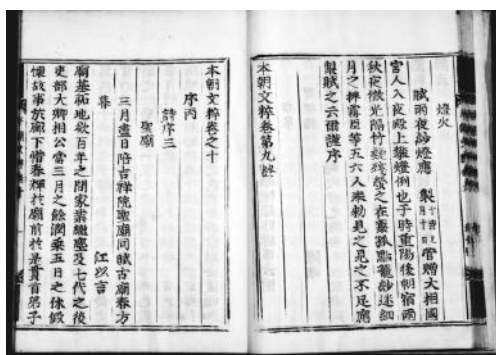 燈火
賦雨夜紗燈應 製 菅贈大相國
宮人入夜殿上擧燈例也于時重陽後朝宿雨
秋夜微光隔竹疑殘螢之在叢孤點籠紗迷細
月之 雲臣等五六人奉勅見之見之不足應
製賦之云爾謹序
本朝文粹卷第九
本朝文粹卷之十
序丙
詩序三
聖廟
三月盡日陪吉祥院聖廟同賦古廟春方
暮 江以言
廟基祐地欲百年之間家業繼塵及七代之後
吏部大卿相公當三月之餘潤乘五日之休假
懷故事於廟下惜春輝於廟前於是貫首弟子